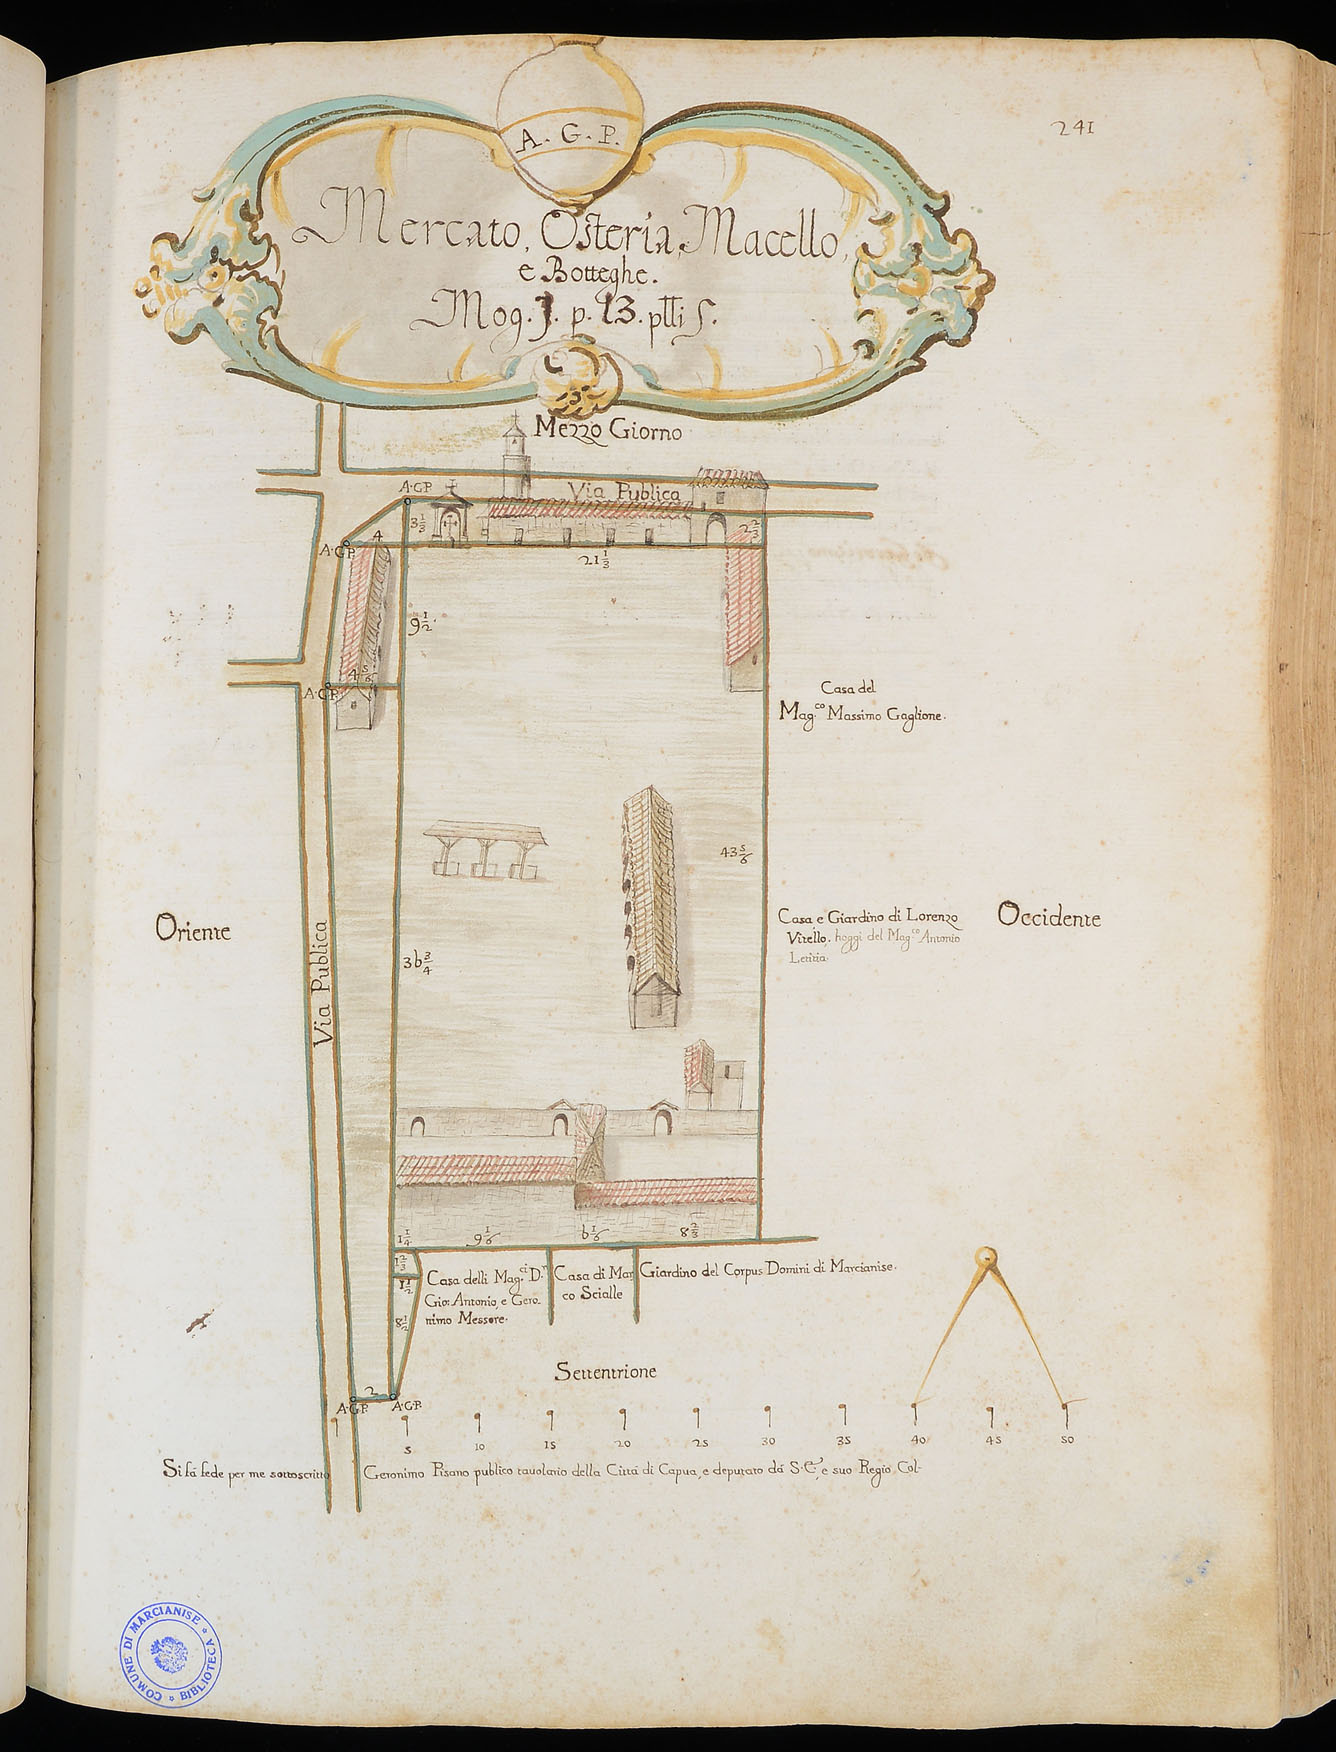 241
A. G. P.
Mercato, Osteria, Macello,
e Botteghe.
Mog. 1. p. 13. ptti 5.
Mezzo Giorno
A.G.P.
Via Publica
3 1/3
4
A.G.P.
2 2/3
21 1/3
9 1/2
4 5/6
A.G.P.
Casa del
Mag.co Massimo Gaglione.
43 5/6
Oriente
Via Publica
36 3/4
Casa e Giardino di Lorenzo
Vitello. hoggi del Mag.co Antonio
Letitia.
Occidente
1 1/4
9 1/6
6 1/6
8 2/3
1 2/3
1 1/2
8 1/2
Casa delli Mag.ci D.
Gio: Antonio, e Gero-
nimo Messore.
Casa di Mar
co Scialle
Giardino del Corpus Domini di Marcianise.
Settentrione
2
A.G.P.
A.G.P.
5 10 15 20 25 30 35 40 45 50
Si fà fede per me sottoscritto Geronimo Pisano publico tavolario della Città di Capua, e deputato dà S. E., e suo Regio Col-
COMUNE DI MARCIANISE * BIBLIOTECA *